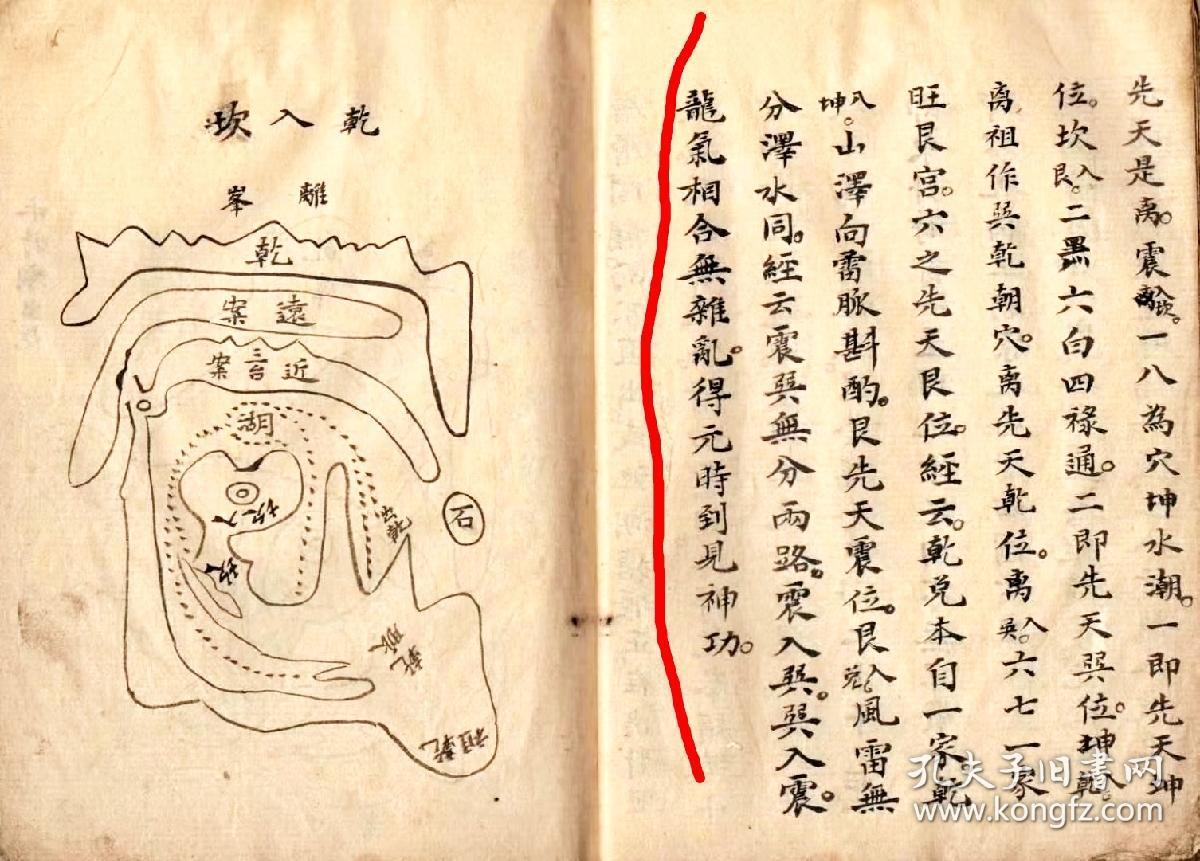 先天是离。震入坎離。一八為穴坤水潮。一即先天坤
位。坎入艮。二黑六白四祿通。二即先天巽位。坤入乾。
离祖作巽乾朝穴。离先天乾位。离入巽。六七一家
旺艮宮。六之先天艮位。經云。乾兌本自一家乾
入坤。山澤向雷脈斟酌。艮先天震位。艮入兌。風雷無
分澤水同。經云震巽無分兩路。震入巽。巽入震。
龍氣相合無雜亂。得元時到見神功。
乾入坎
離峯
乾
遠案
近三台案
湖
石
入坎
乾脈
乾祖
孔夫子旧书网
www.kongfz.com